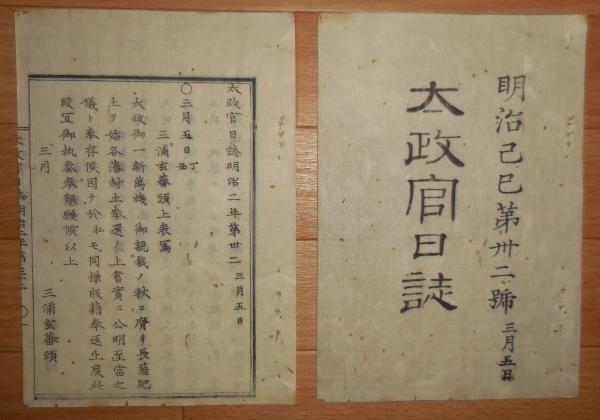 明治己巳第卅二號 三月五日
太政官日誌
太政官日誌明治二年第卅二 三月五日
〇三月五日 丁丑
三浦玄蕃頭上表寫
大政御一新萬機 御親裁ノ秋ニ膺リ長薩肥
土ヲ始各藩封土奉還 上書實ニ公明至當之
儀ト奉存候因テ於私モ同様版籍奉返上度此
段宜御執奏奉懇願候以上
三月 三浦玄蕃頭